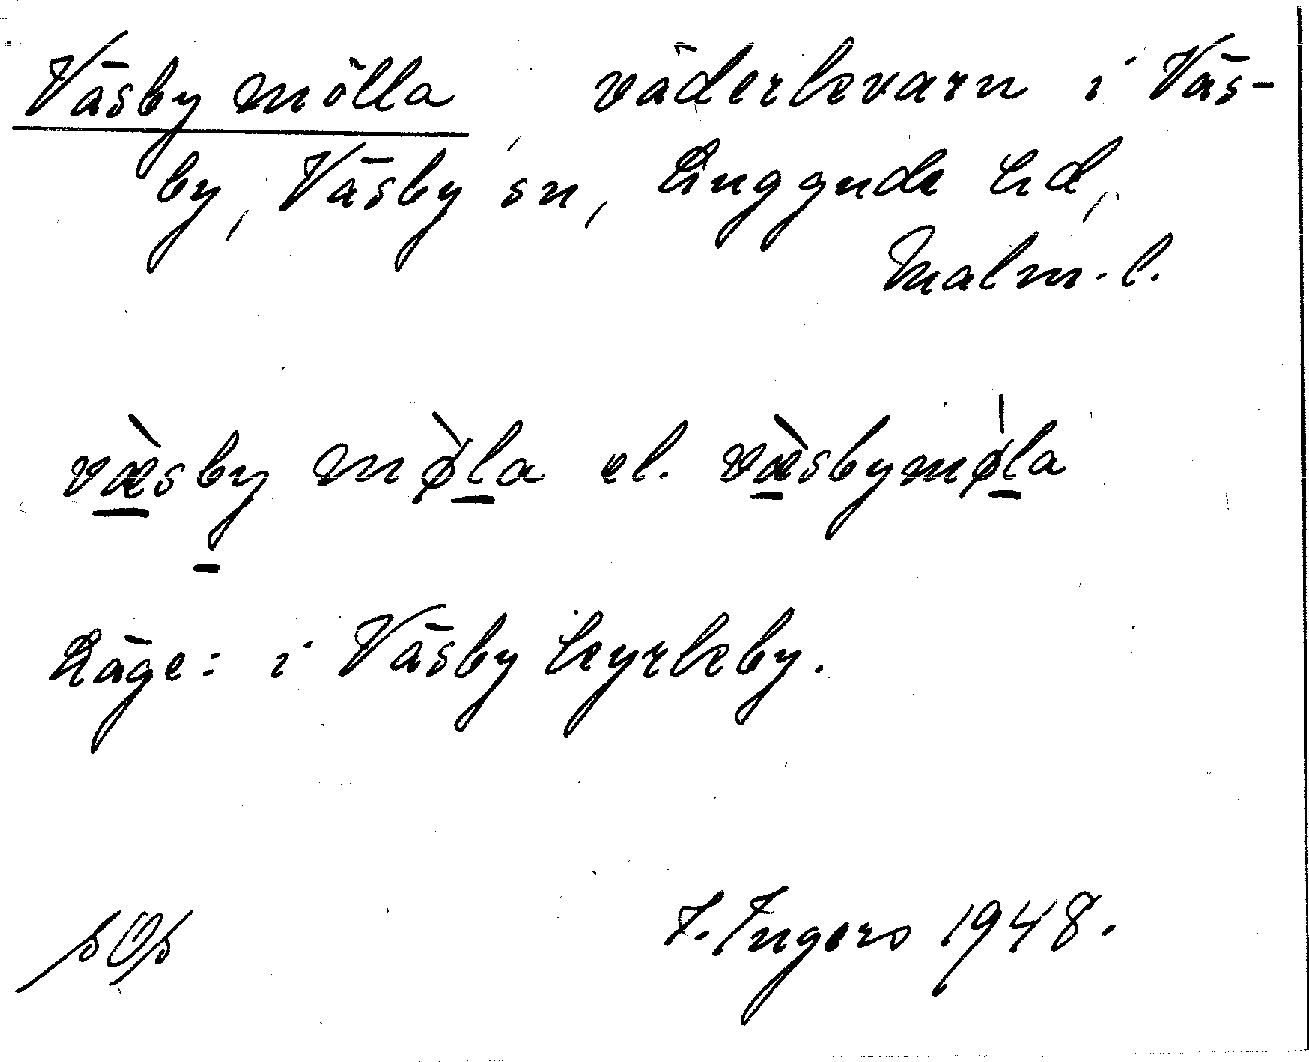 Väsby mölla, väderkvarn i Väs-
by, Väsby sn, Luggude hd,
Malm. l.
væ̀sby mø̀la el. væ̀sbymø̍la
Läge: i Väsby kyrkby.
I. Ingers 1948.